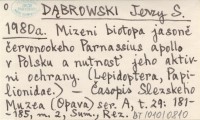 DĄBROWSKI Jerzy S.
1980a. Mizení biotopa jasoně
červenookého Parnassius apollo
v Polsku a nutnosť jeho aktiv
ní ochrany. (Lepidoptera, Papi-
lionidae.) — Časopis Slezského
Muzea (Opava) ser. A, t. 29: 181-
-185, m. 2, Sum., Rez.